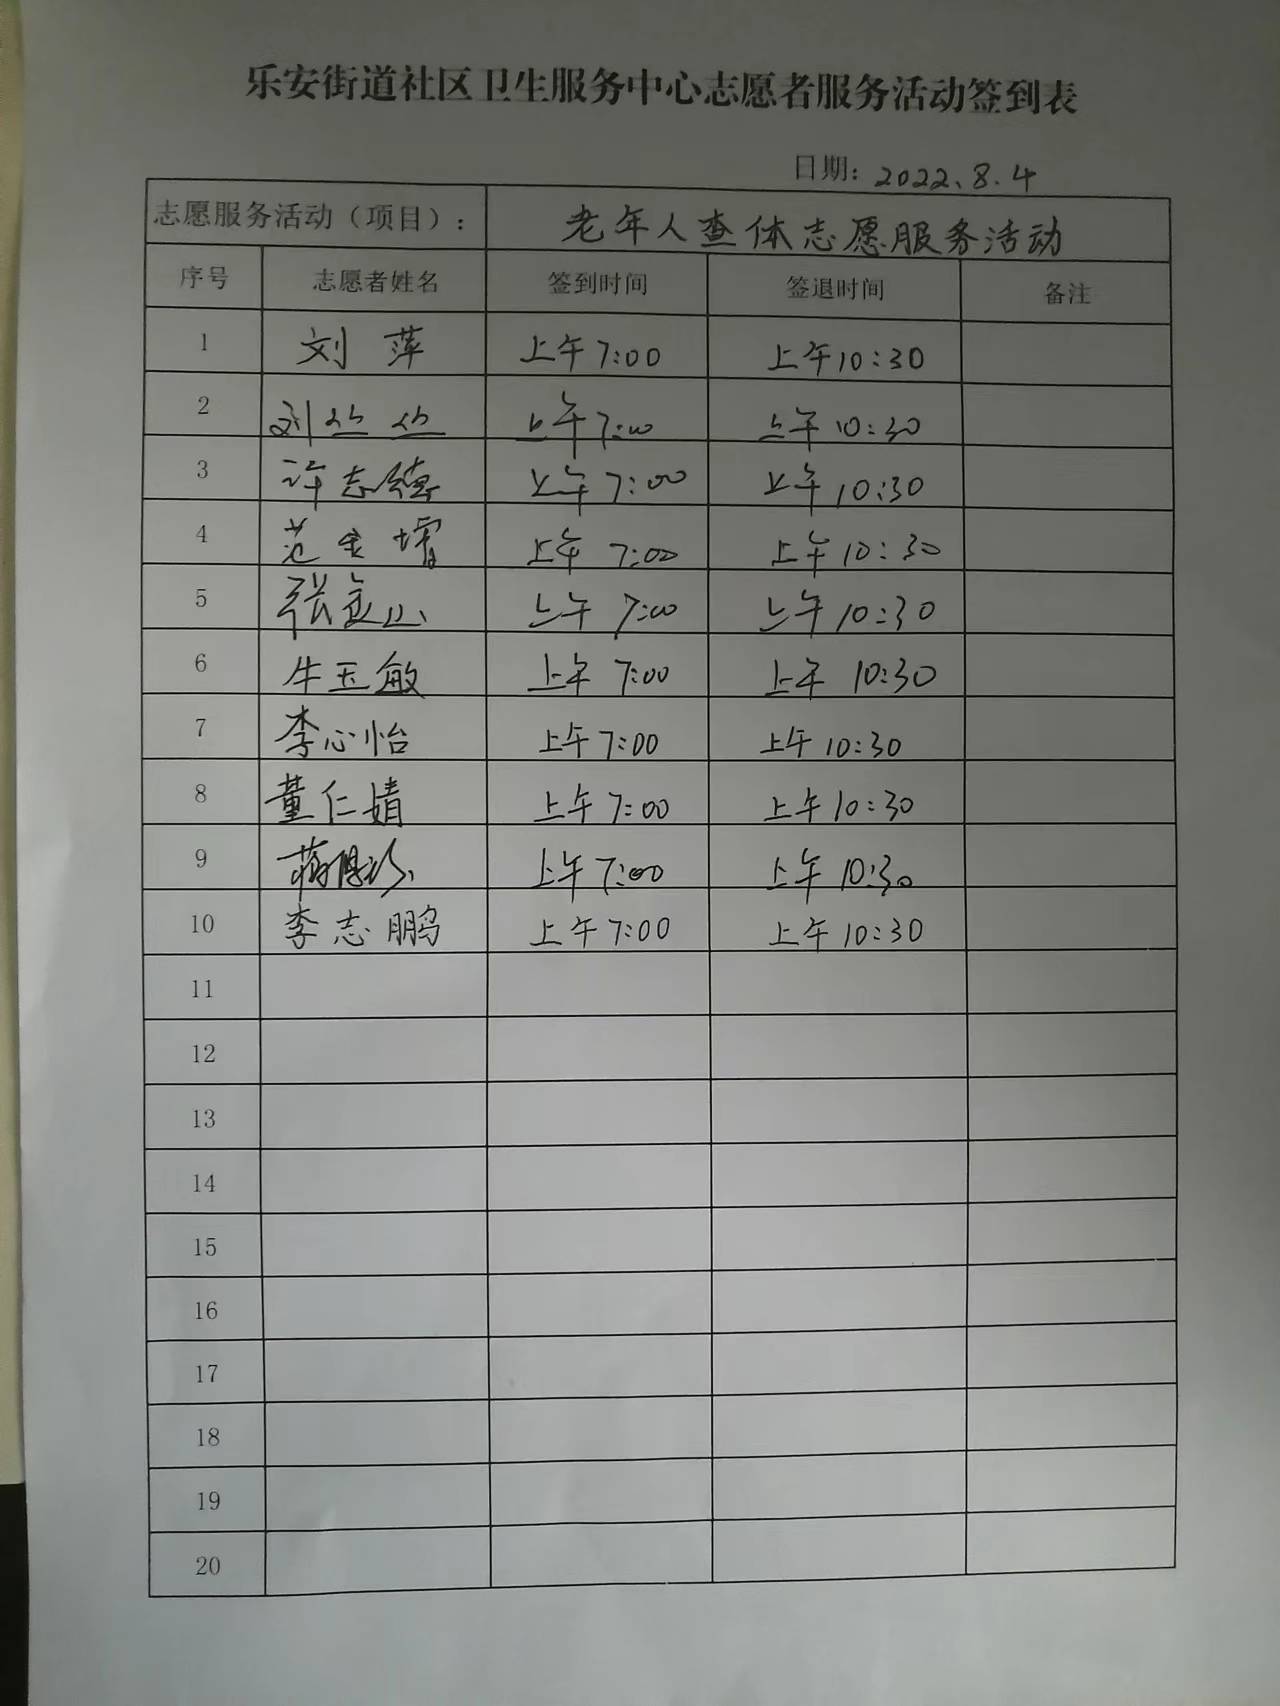 乐安街道社区卫生服务中心志愿者服务活动签到表
日期：2022.8.4
志愿服务活动（项目）： 老年人查体志愿服务活动
序号 志愿者姓名 签到时间 签退时间 备注
1 刘萍 上午7:00 上午10:30
2 刘丛丛 上午7:00 上午10:30
3 许志德 上午7:00 上午10:30
4 范金增 上午7:00 上午10:30
5 张金山 上午7:00 上午10:30
6 牛玉敏 上午7:00 上午10:30
7 李心怡 上午7:00 上午10:30
8 董仁婧 上午7:00 上午10:30
9 上午7:00 上午10:30
10 李志鹏 上午7:00 上午10:30
11
12
13
14
15
16
17
18
19
20